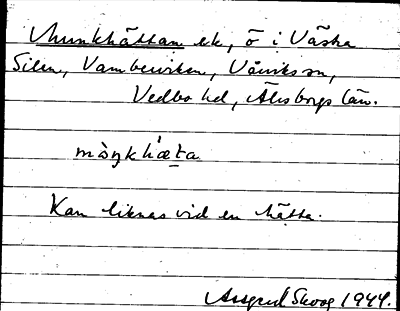 Munkhättan ek, ö i Västra
Silen, Vamberviken, Vårviks sn,
Vedbo hd, Älvsborgs län.
mȧŋkhæta
Kan liknas vid en hätta.
Skoog 1944.